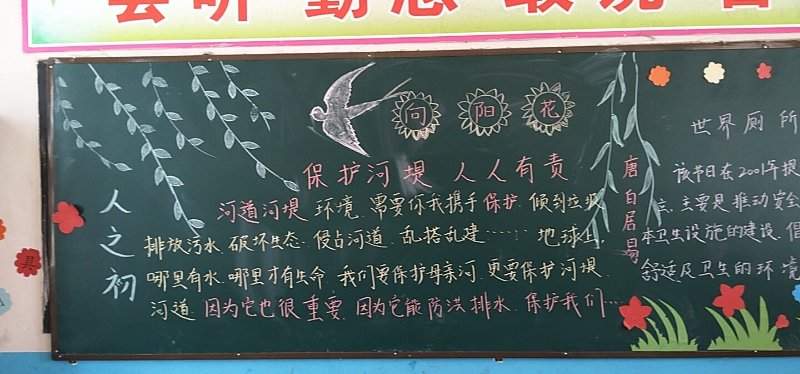 会听 勤思
向阳花
保护河坝 人人有责
人之初
河道河坝 环境,需要你我携手保护,倾到垃圾
排放污水,破坏生态,侵占河道,乱搭乱建…… 地球上,
哪里有水,哪里才有生命,我们要保护母亲河,更要保护河坝
河道,因为它也很重要,因为它能防洪排水,保护我们…
唐白居易
世界厕所
该节日在2001年提
主要是推动安全
本卫生设施的建设,倡
舒适及卫生的环境